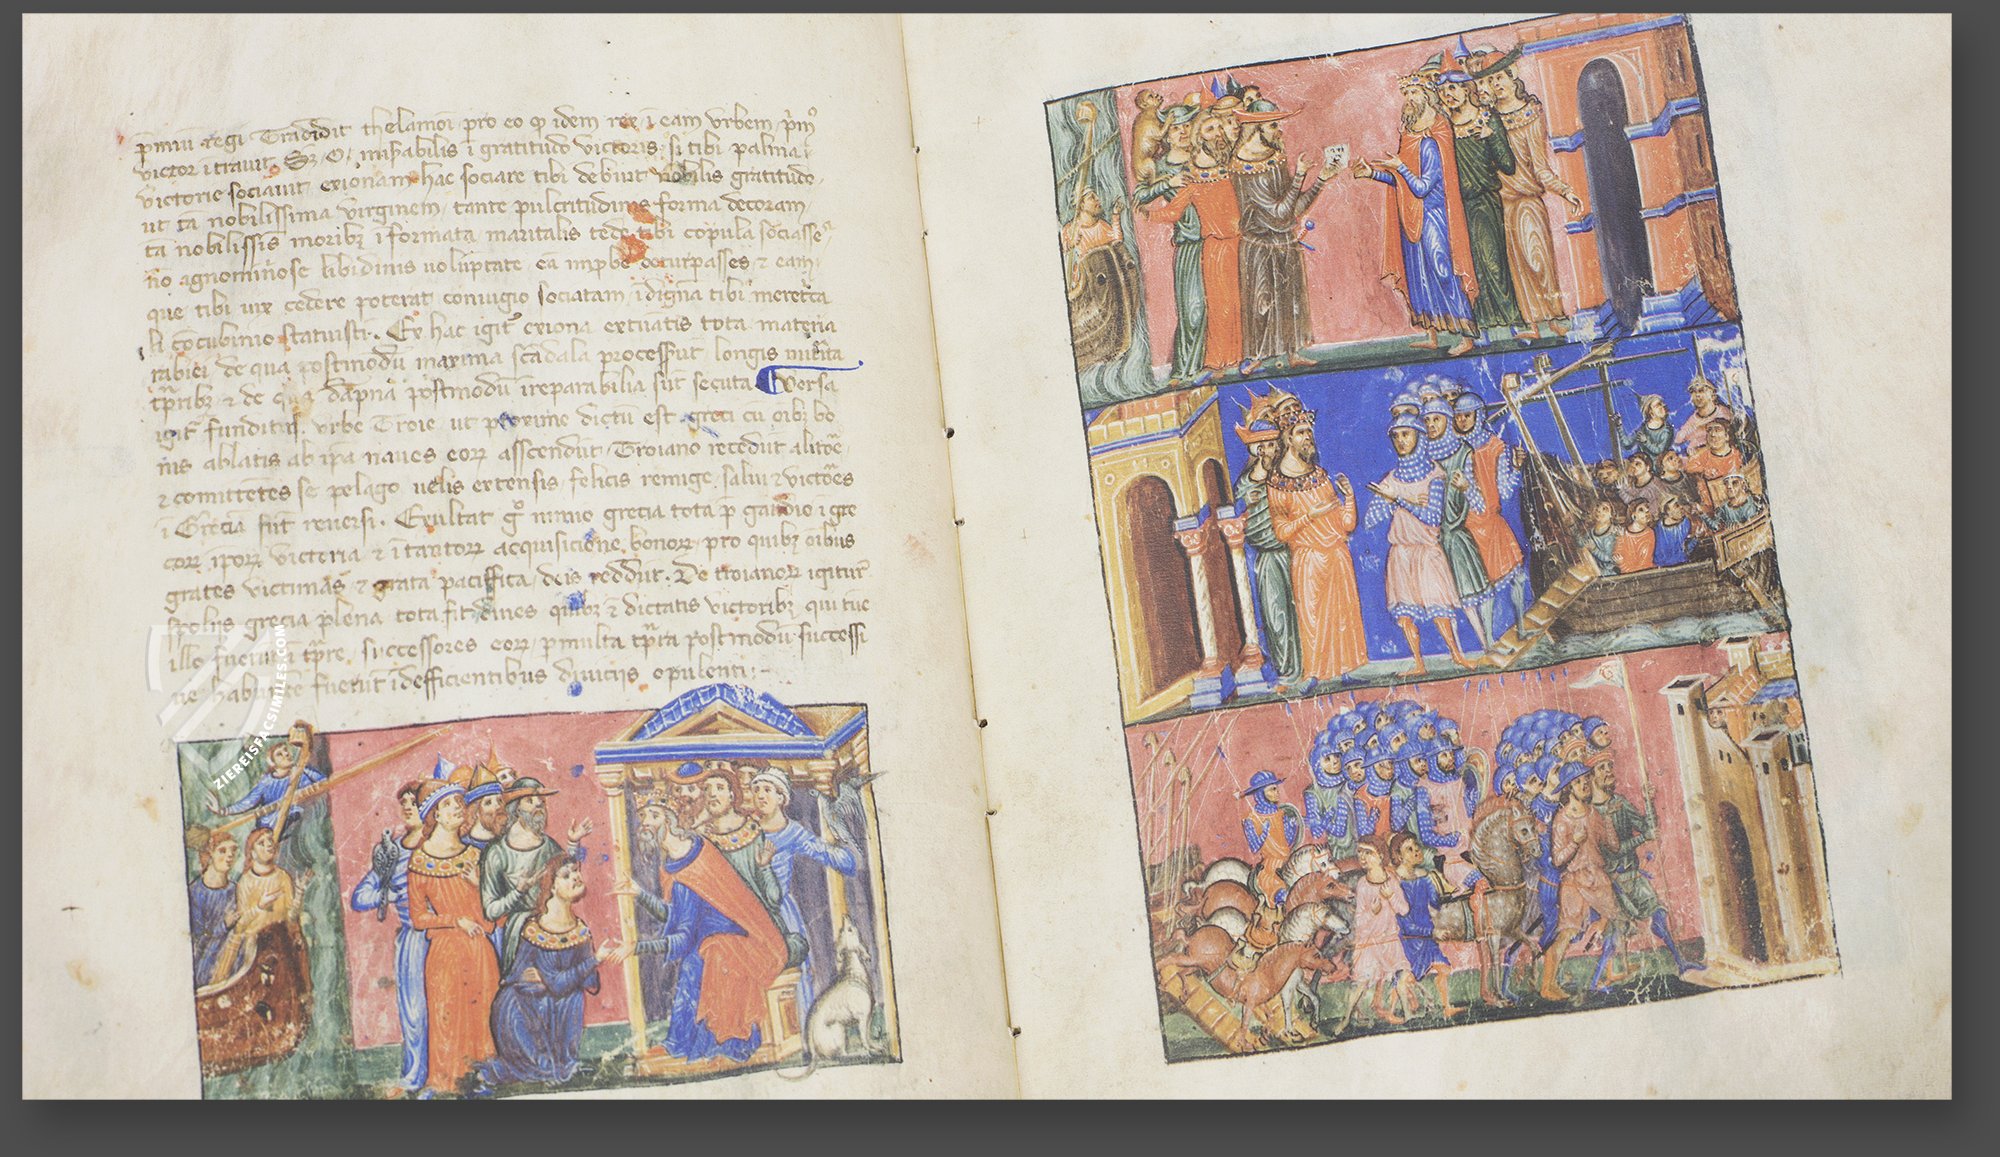 p̄miū regi Tradidit thelamoī pro eo ꝙ idem rex ī eam vrbem p̄mꝰ
victor ītrauit. O īgratitudo victoris si tibi palmaꝫ
victorie sociauit exionam hac sociare tibi debuit nobilis gratitudo
ut tā nobilissima virginem tante pulcritudinis forma decoram
tā nobilissīs moribꝫ īformata maritalis tede tibi copula sociasses
nō agnominose libidinis uoluptate eā īnpbe deturpasses ⁊ eam
que tibi uix cedere poterat coniugio sociatam īdigna tibi
cōcubinio statuisti. Ex hac igit̄ exiona extūatis tota materia
rabiei de qua postmodū maxima scādala processūt longis
tp̄ribꝫ ⁊ de qua dāpna postmodū irreparabilia sūt secuta Versa
igit̄ funditus vrbe Troie ut proxime dictū est greci cū oībꝫ bo
nis ablatis ab ip̄a naues eoꝝ asscendūt Troiano recedūt a litore
⁊ comittētes se pelago uelis extensis felicis remige salui ⁊ victores
ī Greciā sūt reuersi. Exultat gͦ nimio grecia tota p̄ gaudio ī gre
coꝝ ipoꝝ victoria ⁊ ī tantoꝝ acquisicione bonoꝝ pro quibꝫ oībus
grates victimas ⁊ grata paciffica deis reddūt. De troianoꝝ igitur
spoliis grecia plena tota fit diues quibꝫ ⁊ dictatis victoribꝫ qui tūc
illo fuerunt tp̄re successores eoꝝ pmulta tp̄ra postmodū successi
ue habuere fuerūt īdefficientibus diuiciis opulenti
ZIEREISFACSIMILES.COM